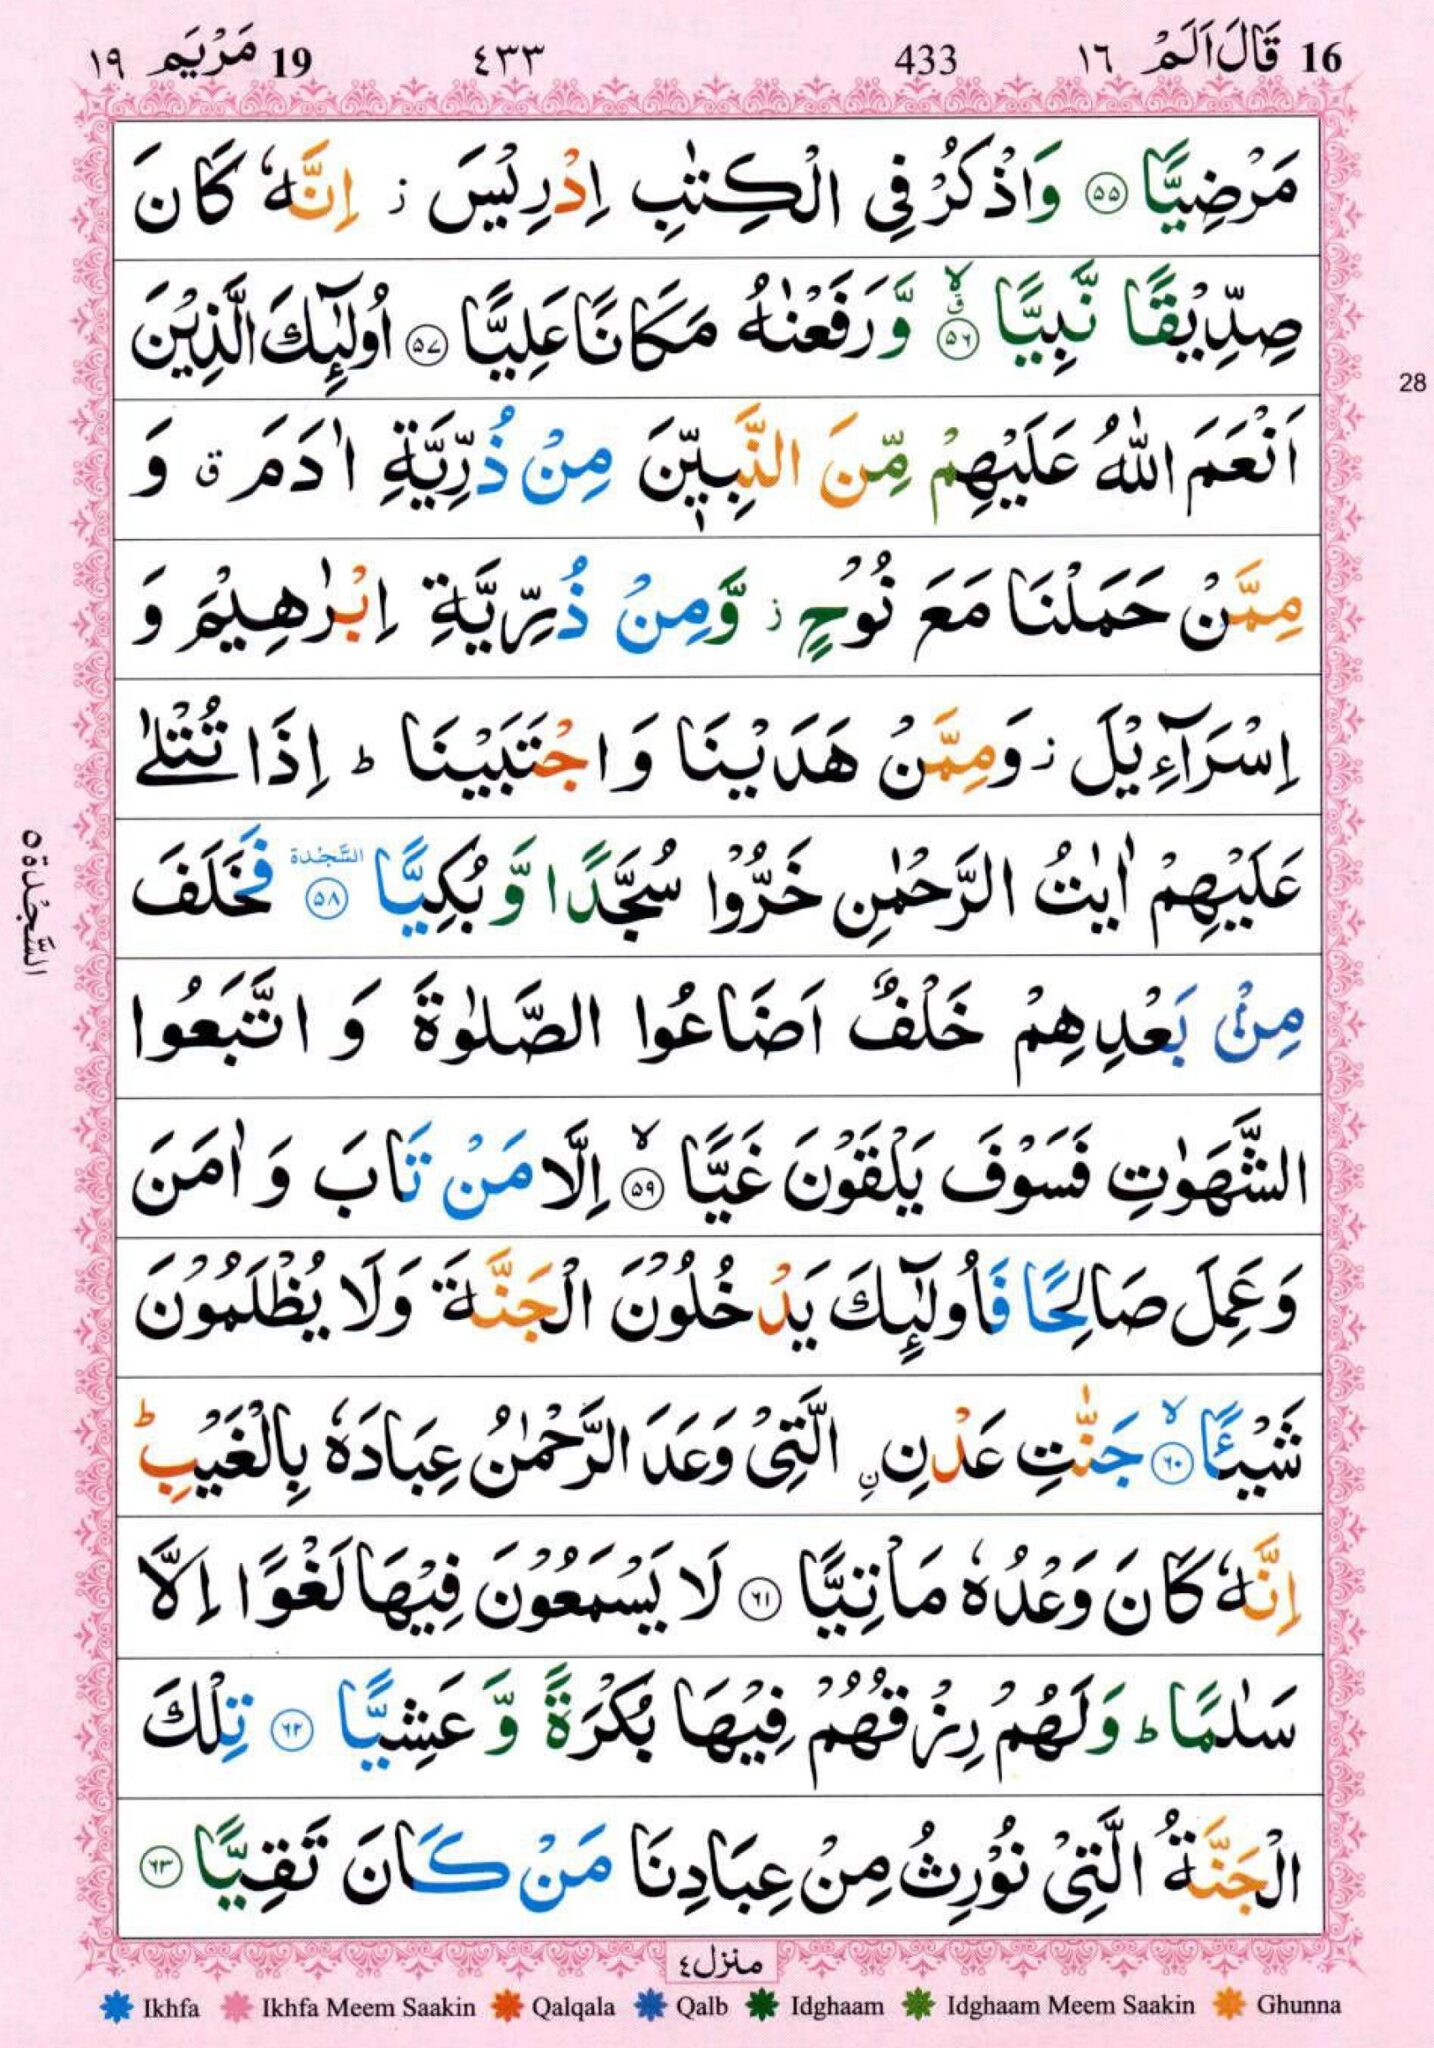 16 قَالَ اَلَمْ ١٦ 433 ٤٣٣ 19 مَرْيَم ١٩
مَرْضِيًّا ۵۵ وَاذْكُرْ فِي الْكِتٰبِ اِدْرِيْسَ ز اِنَّهٗ كَانَ
صِدِّيْقًا نَّبِيًّا ۵۶ ۙق وَّرَفَعْنٰهُ مَكَانًا عَلِيًّا ۵۷ اُولٰٓئِكَ الَّذِيْنَ
28
اَنْعَمَ اللّٰهُ عَلَيْهِمْ مِّنَ النَّبِيّٖنَ مِنْ ذُرِّيَّةِ اٰدَمَ ق وَ
مِمَّنْ حَمَلْنَا مَعَ نُوْحٍ ز وَّمِنْ ذُرِّيَّةِ اِبْرٰهِيْمَ وَ
اِسْرَآءِيْلَ ز وَمِمَّنْ هَدَيْنَا وَاجْتَبَيْنَا ط اِذَا تُتْلٰى
عَلَيْهِمْ اٰيٰتُ الرَّحْمٰنِ خَرُّوْا سُجَّدًا وَّبُكِيًّا السَّجْدَة ۵۸ فَخَلَفَ
السَّجْدَة ۵
مِنْۢ بَعْدِهِمْ خَلْفٌ اَضَاعُوا الصَّلٰوةَ وَاتَّبَعُوا
الشَّهَوٰتِ فَسَوْفَ يَلْقَوْنَ غَيًّا ۵۹ ۙ اِلَّا مَنْ تَابَ وَاٰمَنَ
وَعَمِلَ صَالِحًا فَاُولٰٓئِكَ يَدْخُلُوْنَ الْجَنَّةَ وَلَا يُظْلَمُوْنَ
شَيْئًا ۶۰ ۙ جَنّٰتِ عَدْنِ نِ الَّتِيْ وَعَدَ الرَّحْمٰنُ عِبَادَهٗ بِالْغَيْبِ ط
اِنَّهٗ كَانَ وَعْدُهٗ مَاْتِيًّا ۶۱ لَا يَسْمَعُوْنَ فِيْهَا لَغْوًا اِلَّا
سَلٰمًا ط وَلَهُمْ رِزْقُهُمْ فِيْهَا بُكْرَةً وَّعَشِيًّا ۶۲ تِلْكَ
الْجَنَّةُ الَّتِيْ نُوْرِثُ مِنْ عِبَادِنَا مَنْ كَانَ تَقِيًّا ۶۳
منزل ٤
Ikhfa Ikhfa Meem Saakin Qalqala Qalb Idghaam Idghaam Meem Saakin Ghunna